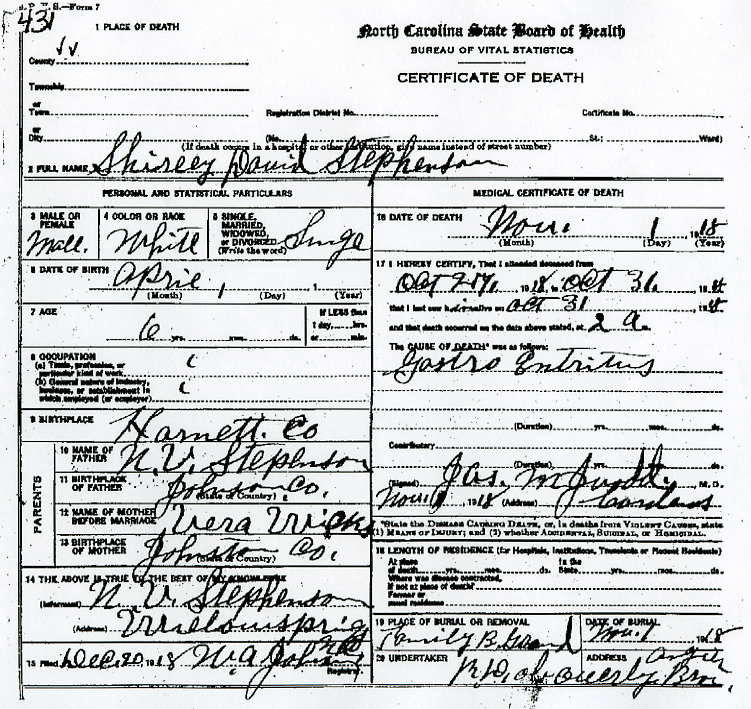 Form 7
431
1 PLACE OF DEATH
County
Township
or
Town
or
City
North Carolina State Board of Health
BUREAU OF VITAL STATISTICS
CERTIFICATE OF DEATH
Registration District No.
Certificate No.
(No.
St.;
Ward)
(If death occurs in a hospital or other institution, give name instead of street number)
2 FULL NAME Shirley David Stephenson
PERSONAL AND STATISTICAL PARTICULARS
3 MALE OR FEMALE
Male.
4 COLOR OR RACE
White
5 SINGLE, MARRIED, WIDOWED, or DIVORCED (Write the word)
Singe
6 DATE OF BIRTH
April
(Month) 1 (Day) 1 (Year)
7 AGE
6 yrs. mos. ds.
If LESS than
1 day, hrs.
or min.
8 OCCUPATION
(a) Trade, profession, or particular kind of work
(b) General nature of industry, business, or establishment in which employed (or employer)
9 BIRTHPLACE
Harnett. Co
PARENTS
10 NAME OF FATHER
N. V. Stephenson
11 BIRTHPLACE OF FATHER
Johnson Co.
(State or Country)
12 NAME OF MOTHER BEFORE MARRIAGE
Vera
13 BIRTHPLACE OF MOTHER
Johnston Co.
(State or Country)
14 THE ABOVE IS TRUE TO THE BEST OF MY KNOWLEDGE
(Informant) N. V. Stephenson
(Address) Willowsprigs
15 Filed Dec. 20 1918 W. A. Johnson
Registrar
MEDICAL CERTIFICATE OF DEATH
16 DATE OF DEATH Nov. 1 1918
(Month) (Day) (Year)
17 I HEREBY CERTIFY, That I attended deceased from
Oct 27, 1918, to Oct 31, 1918
that I last saw h alive on Oct 31 1918
and that death occurred on the date above stated, at 2 a m.
The CAUSE OF DEATH* was as follows:
Gastro Entritus
(Duration) yrs. mos. ds.
Contributory
(Duration) yrs. mos. ds.
(Signed) Jas. M Judd M. D.
Nov. 1918 (Address) Cardenas
*State the DISEASE CAUSING DEATH, or, in deaths from VIOLENT CAUSES, state
(1) MEANS OF INJURY; and (2) whether ACCIDENTAL, SUICIDAL, OR HOMICIDAL.
18 LENGTH OF RESIDENCE (for Hospitals, Institutions, Transients or Recent Residents)
At place of death yrs. mos. ds. In the State yrs. mos. ds.
Where was disease contracted,
If not at place of death?
Former or
usual residence
19 PLACE OF BURIAL OR REMOVAL
Family B. Ground
DATE OF BURIAL
Nov. 1 1918
20 UNDERTAKER
ADDRESS
Angier